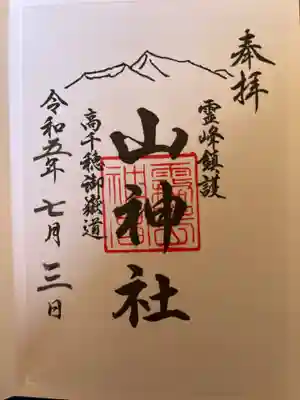 奉拝
霊峰鎮護
山神社
高千穂御嶽道
令和五年七月三日